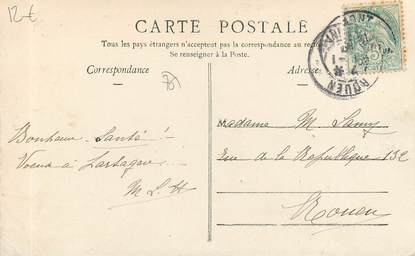 12€
CARTE POSTALE
Tous les pays étrangers n'acceptent pas la correspondance au
Se renseigner à la Poste.
Correspondance
Adresse
Bonheur Santé!
Voeux à
M L H
Madame M
Rue de la République 132
Rouen
ROUEN